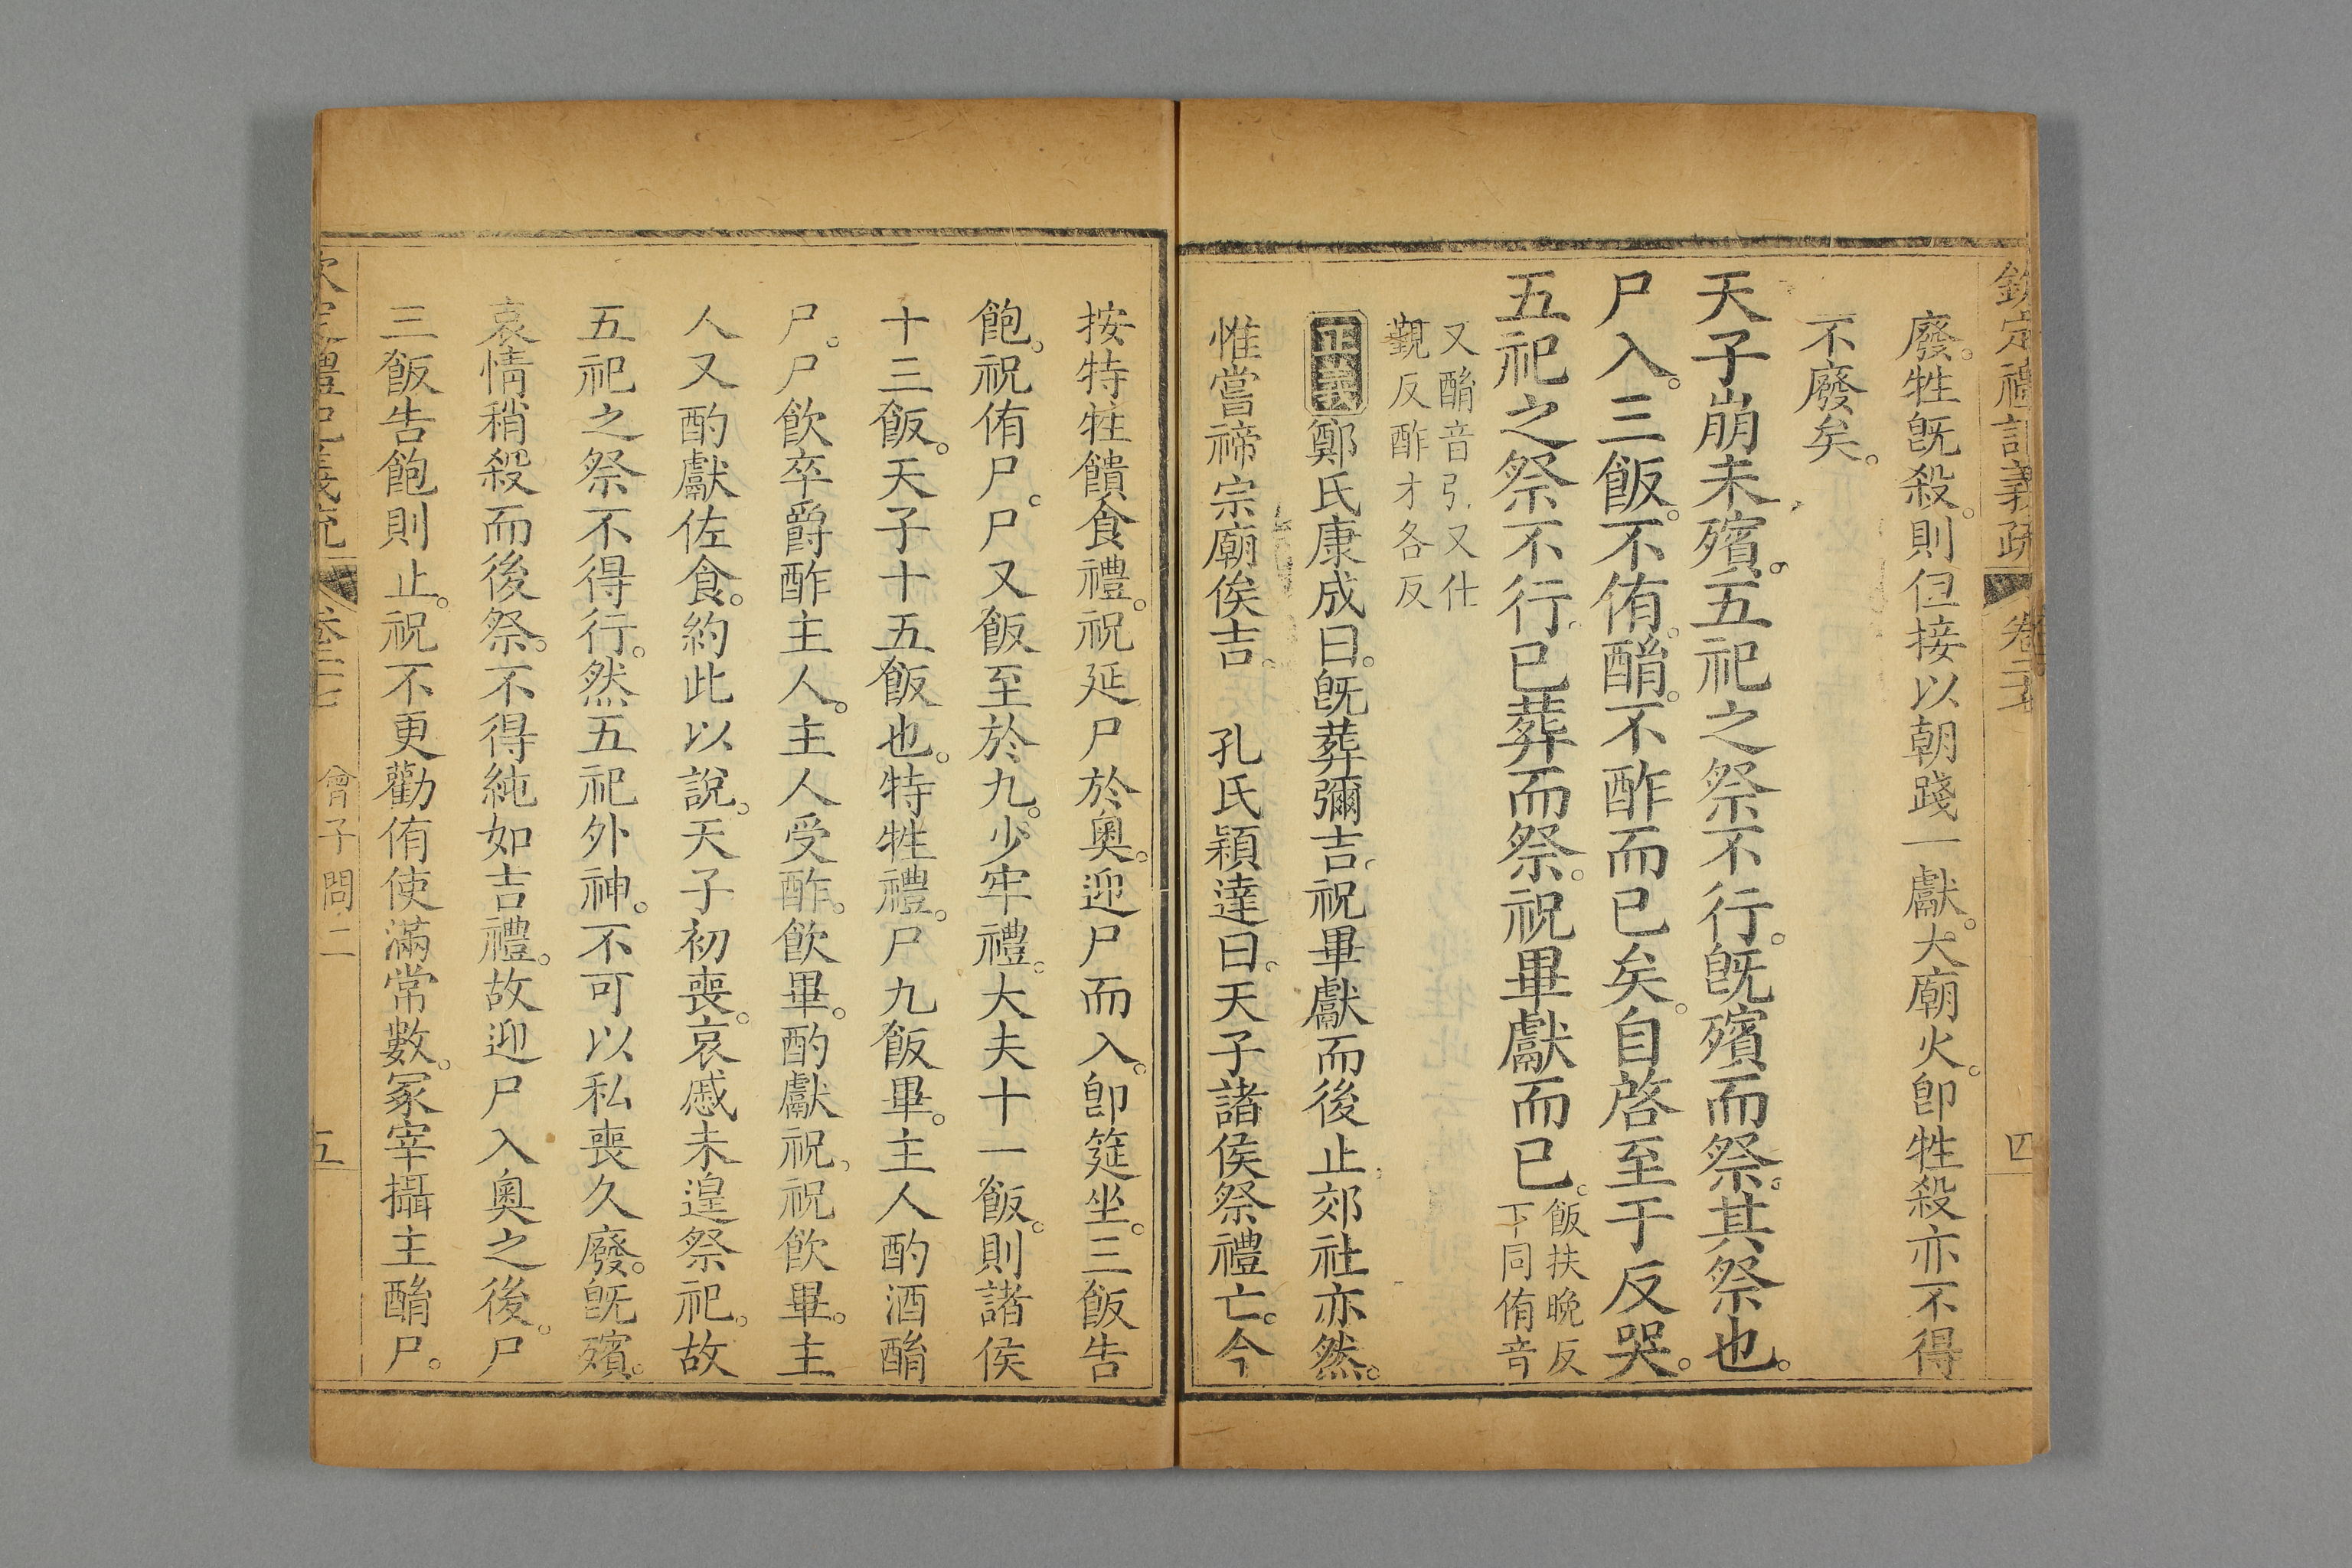 欽定禮記義疏 卷二十七 四
廢。牲旣殺。則但接以朝踐一獻。大廟火。卽牲殺亦不得
不廢矣。
天子崩未殯。五祀之祭不行。旣殯而祭。其祭也。
尸入。三飯。不侑。酳。不酢而已矣。自啓至于反哭。
五祀之祭不行。已葬而祭。祝畢獻而已。飯扶晚反
下同侑音
又酳音引又仕
覲反酢才各反
正義鄭氏康成曰。旣葬彌吉。祝畢獻而後止。郊社亦然。
惟嘗禘宗廟俟吉。 孔氏穎達曰。天子諸侯祭禮亡。今
按特牲饋食禮。祝延尸於奧。迎尸而入。卽筵坐。三飯告
飽。祝侑尸。尸又飯至於九。少牢禮。大夫十一飯。則諸侯
十三飯。天子十五飯也。特牲禮。尸九飯畢。主人酌酒酳
尸。尸飲卒爵酢主人。主人受酢。飲畢。酌獻祝。祝飲畢。主
人又酌獻佐食。約此以說。天子初喪。哀慼未遑祭祀。故
五祀之祭不得行。然五祀外神。不可以私喪久廢。旣殯。
哀情稍殺而後祭。不得純如吉禮。故迎尸入奧之後。尸
三飯告飽則止。祝不更勸侑使滿常數。冢宰攝主酳尸。
欽定禮記義疏 卷二十七 曾子問二 五